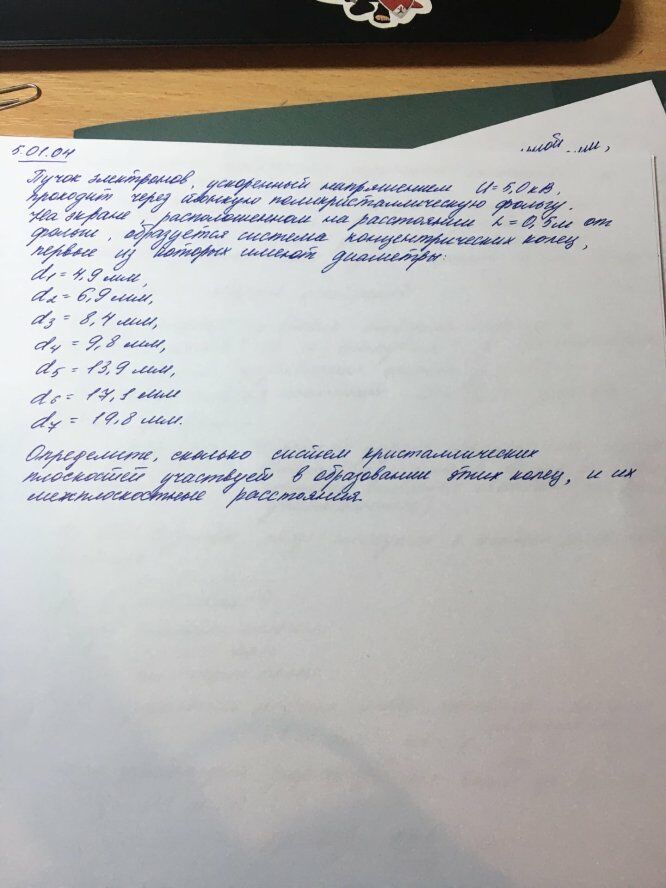 5.01.04
Пучок электронов, ускоренный напряжением U = 5,0 кВ,
проходит через тонкую поликристаллическую фольгу.
На экране, расположенном на расстоянии L = 0,5м от
фольги, образуется система концентрических колец,
первые из которых имеют диаметры:
d1 = 4,9 мм,
d2 = 6,9 мм,
d3 = 8,4 мм,
d4 = 9,8 мм,
d5 = 13,9 мм,
d6 = 17,1 мм
d7 = 19,8 мм.
Определите, сколько систем кристаллических
плоскостей участвует в образовании этих колец, и их
межплоскостные расстояния.